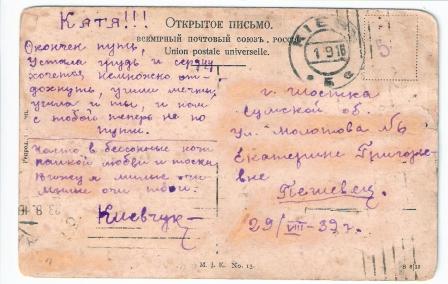 Катя!!!
ОТКРЫТОЕ ПИСЬМО.
ВСЕМІРНЫЙ ПОЧТОВЫЙ СОЮЗЪ, РОССІЯ.
Union postale universelle.
Окончен путь,
Устала грудь и сердцу
хочется немножко от-
дохнуть, ушли мечты,
ушла и ты, и нам
с тобой теперь не по
пути.
Часто в бессоные ночи
полной любви и тоски,
Вижу я милые очи
милые очи твои.
Киевчук
KIEV
1 9 16
5
г. Шостка
Сумской об.
ул. Молотова №6
Екатерине Григорье-
вне
29/VIII-39 г.
23.8.16
M. J. K. No. 13.